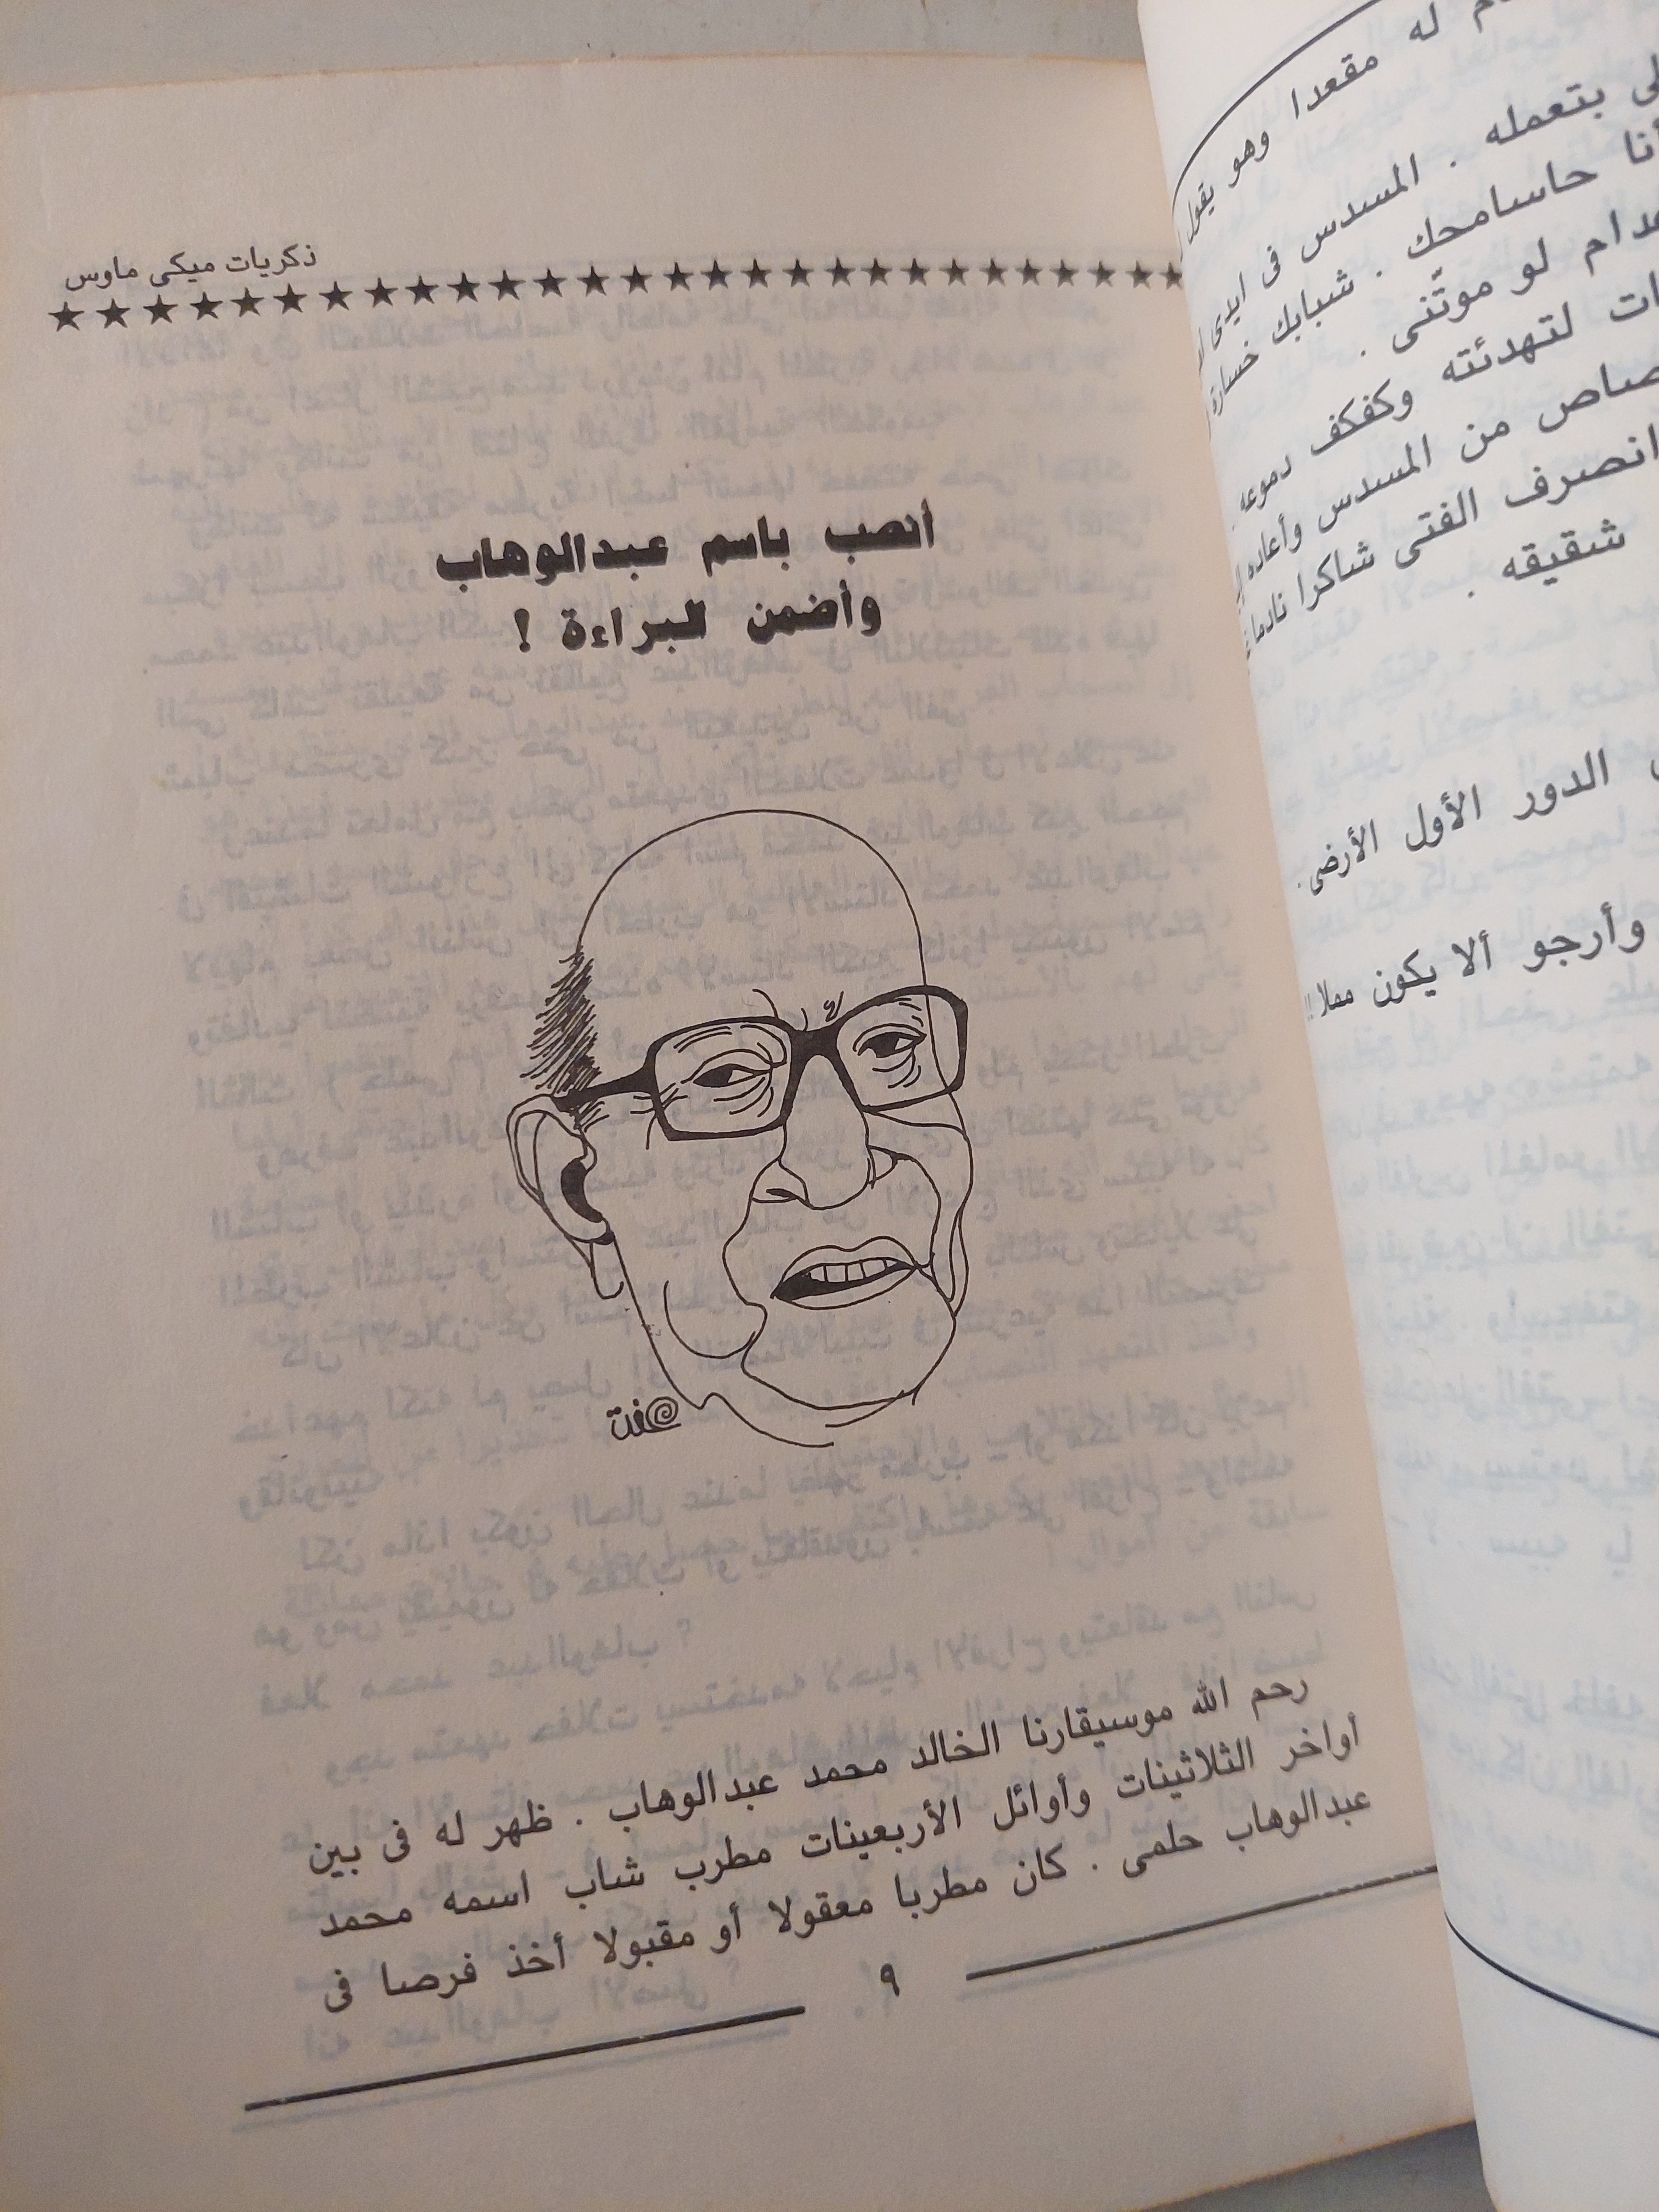 له مقعدا وهو يقول
بتعمله . المسدس فى ايدى
أنا حاسامحك . شبابك خسارة
لو موتّنى .
لتهدئته وكفكف دموعه .
من المسدس وأعاده
انصرف الفتى شاكرا نادما
شقيقه .
الدور الأول الأرضى .
وأرجو ألا يكون مملا !!
ذكريات ميكى ماوس
أنصب باسم عبدالوهاب
وأضمن البراءة !
رحم الله موسيقارنا الخالد محمد عبدالوهاب . ظهر له فى بين
أواخر الثلاثينات وأوائل الأربعينات مطرب شاب اسمه محمد
عبدالوهاب حلمى . كان مطربا معقولا أو مقبولا أخذ فرصا فى
٩